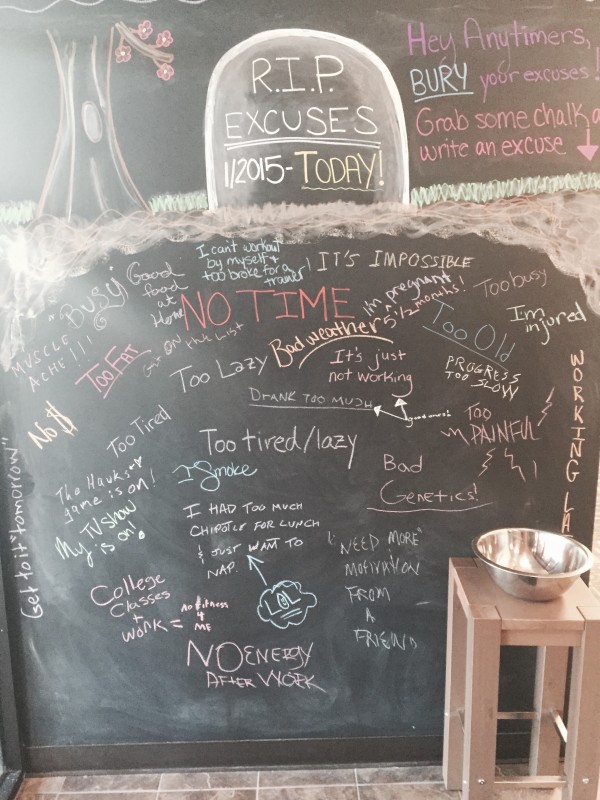 R.I.P.
EXCUSES
1/2015-TODAY!
Hey Anytimers,
BURY your excuses!
Grab some chalk
write an excuse
I can't workout
by myself +
too broke for a
trainer!
IT'S IMPOSSIBLE
"Busy"
Good
food
at
Home
NO TIME
I'm pregnant
5 1/2 months!
Too busy
I'm
injured
Too Old
MUSCLE
ACHE!!!
Too FAT
Get ON the List
Bad weather
Too Lazy
It's just
not working
PROGRESS
TOO SLOW
DRANK TOO MUCH
good one!
Too
PAINFUL
WORKING LA
No $
Too Tired
Too tired/lazy
Bad
Genetics!
I Smoke
The Hawks
game is on!
My TV show
is on!
Get to it "tomorrow"
I HAD TOO MUCH
CHIPOTLE FOR LUNCH
& JUST WANT TO
NAP.
LOL
"NEED MORE"
MOTIVATION
FROM
A
FRIEND
College
Classes
+
work =
No fitness
4
ME
NO ENERGY
AFTER WORK